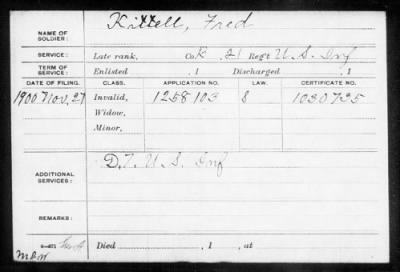 NAME OF SOLDIER: Kittell, Fred
SERVICE: Late rank, Co. K, 21 Reg't U. S. Inf
TERM OF SERVICE: Enlisted , 1 Discharged , 1
DATE OF FILING. CLASS. APPLICATION NO. LAW. CERTIFICATE NO.
1900 Nov, 27 Invalid, 1258103 8 1030735
Widow,
Minor,
ADDITIONAL SERVICES: D. 7, U. S. Inf
REMARKS:
Died , 1 , at